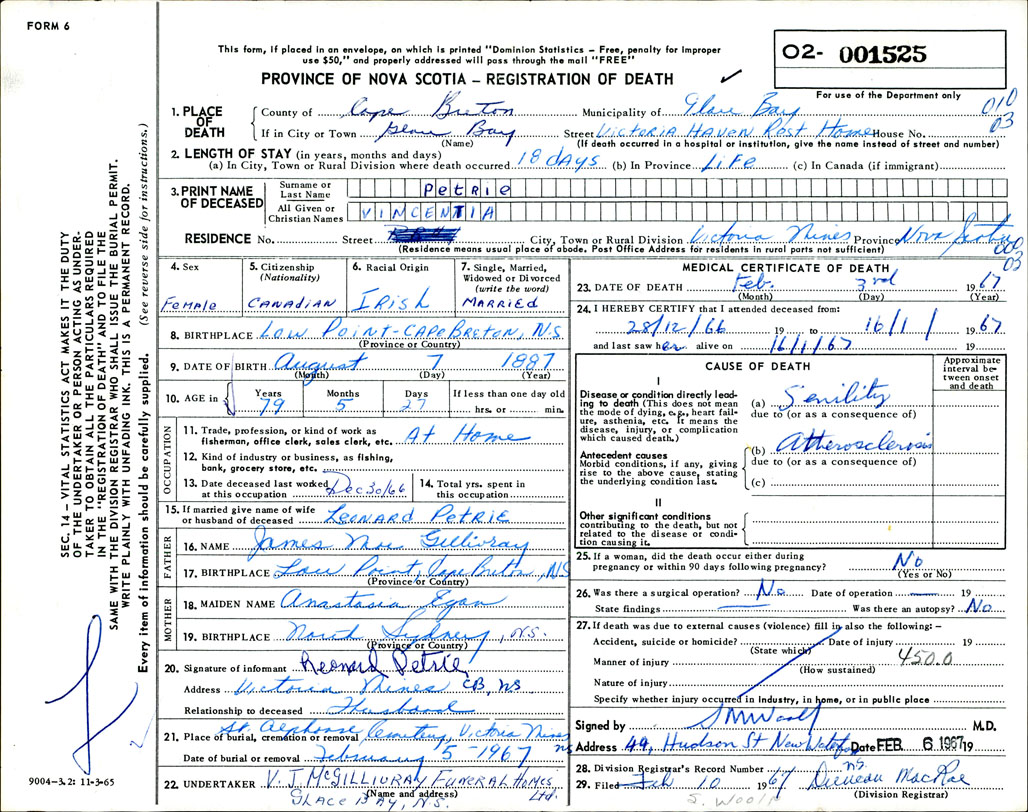 FORM 6
This form, if placed in an envelope, on which is printed "Dominion Statistics – Free, penalty for improper
use $50," and properly addressed will pass through the mail "FREE"
PROVINCE OF NOVA SCOTIA – REGISTRATION OF DEATH
02- 001525
For use of the Department only
010
03
1. PLACE OF DEATH
County of Cape Breton Municipality of Glace Bay
If in City or Town Glace Bay Street Victoria Haven Rest Home House No.
(Name) (If death occurred in a hospital or institution, give the name instead of street and number)
2. LENGTH OF STAY (in years, months and days)
(a) In City, Town or Rural Division where death occurred 18 days (b) In Province Life (c) In Canada (if immigrant)
3. PRINT NAME OF DECEASED
Surname or Last Name Petrie
All Given or Christian Names VINCENTIA
RESIDENCE No. Street City, Town or Rural Division Victoria Mines Province Nova Scotia
(Residence means usual place of abode. Post Office Address for residents in rural parts not sufficient)
000
03
4. Sex Female
5. Citizenship (Nationality) CANADIAN
6. Racial Origin IRISH
7. Single, Married, Widowed or Divorced (write the word) MARRIED
8. BIRTHPLACE Low Point-Cape Breton, N.S.
(Province or Country)
9. DATE OF BIRTH August 7 1887
(Month) (Day) (Year)
10. AGE in Years 79 Months 5 Days 27 If less than one day old hrs. or min.
OCCUPATION
11. Trade, profession, or kind of work as fisherman, office clerk, sales clerk, etc. At Home
12. Kind of industry or business, as fishing, bank, grocery store, etc.
13. Date deceased last worked at this occupation Dec 30/66
14. Total yrs. spent in this occupation
15. If married give name of wife or husband of deceased Leonard Petrie
FATHER
16. NAME James Mac Gillivray
17. BIRTHPLACE Low Point, Cape Breton, NS
(Province or Country)
MOTHER
18. MAIDEN NAME Anastasia Egan
19. BIRTHPLACE North Sydney, N.S.
(Province or Country)
20. Signature of informant Leonard Petrie
Address Victoria Mines CB, NS
Relationship to deceased Husband
21. Place of burial, cremation or removal St. Alphonse Cemetery, Victoria Mines NS
Date of burial or removal February 5-1967
22. UNDERTAKER V. J. McGillivray Funeral Homes Ltd.
(Name and address)
Glace Bay, N.S.
MEDICAL CERTIFICATE OF DEATH
23. DATE OF DEATH Feb. 3rd 1967
(Month) (Day) (Year)
24. I HEREBY CERTIFY that I attended deceased from:
28/12/66 19 to 16/1/ 1967
and last saw her alive on 16/1/67 19
CAUSE OF DEATH
Approximate interval between onset and death
I
Disease or condition directly leading to death (This does not mean the mode of dying, e.g., heart failure, asthenia, etc. It means the disease, injury, or complication which caused death.)
(a) Senility
due to (or as a consequence of)
Antecedent causes
Morbid conditions, if any, giving rise to the above cause, stating the underlying condition last.
(b) Atherosclerosis
due to (or as a consequence of)
(c)
II
Other significant conditions
contributing to the death, but not related to the disease or condition causing it.
25. If a woman, did the death occur either during
pregnancy or within 90 days following pregnancy? No
(Yes or No)
26. Was there a surgical operation? No Date of operation 19
State findings Was there an autopsy? No
27. If death was due to external causes (violence) fill in also the following:–
Accident, suicide or homicide? Date of injury 19
(State which)
Manner of injury 450.0
(How sustained)
Nature of injury
Specify whether injury occurred in industry, in home, or in public place
Signed by M.D.
Address 49, Hudson St New Waterford Date FEB 6 1967 19
n.s.
28. Division Registrar's Record Number
29. Filed Feb 10 1967 MacRae
(Division Registrar)
S. Woolf
SEC. 14 – VITAL STATISTICS ACT MAKES IT THE DUTY
OF THE UNDERTAKER OR PERSON ACTING AS UNDER-
TAKER TO OBTAIN ALL THE PARTICULARS REQUIRED
IN THE "REGISTRATION OF DEATH" AND TO FILE THE
SAME WITH THE DIVISION REGISTRAR WHO SHALL ISSUE THE BURIAL PERMIT.
WRITE PLAINLY WITH UNFADING INK. THIS IS A PERMANENT RECORD.
Every item of information should be carefully supplied. (See reverse side for instructions.)
9004-3.2: 11-3-65